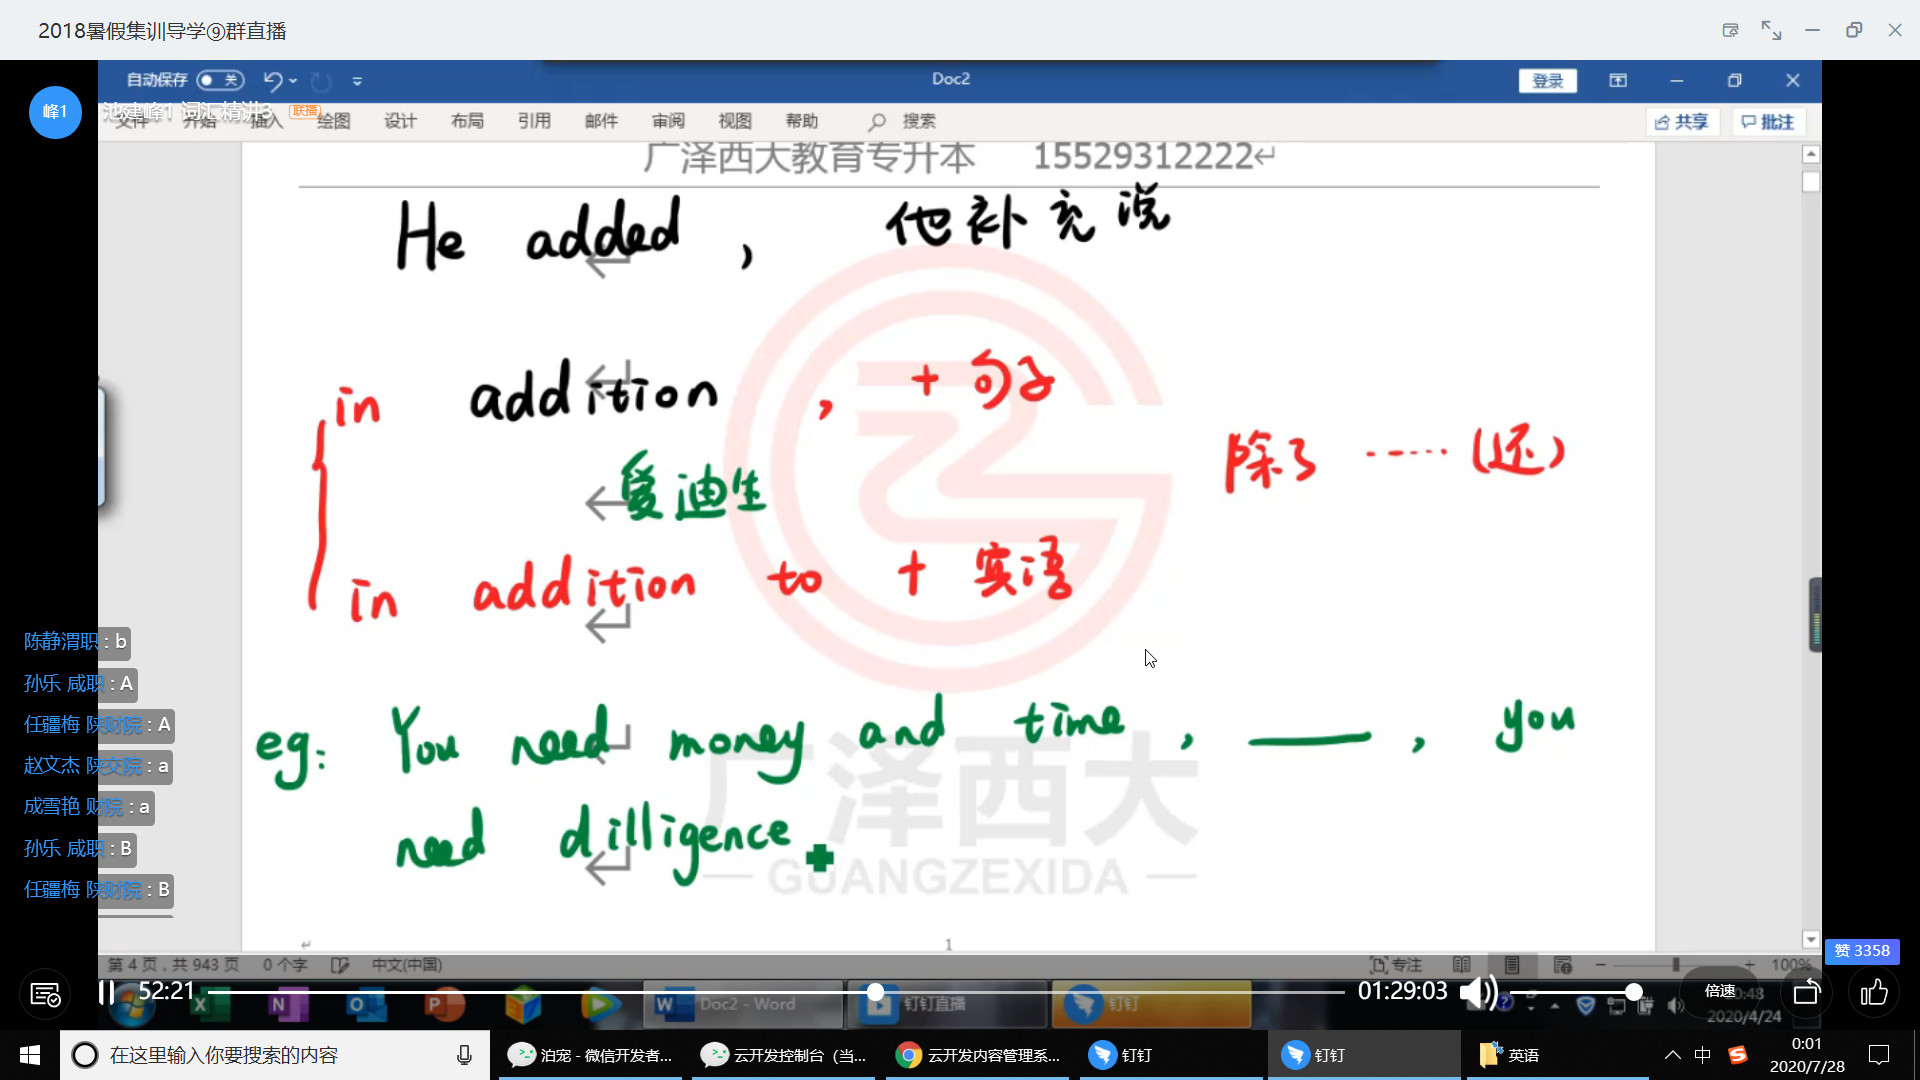 2018暑假集训导学⑨群直播
自动保存 关 Doc2 登录
峰1 池建峰1 词汇精讲3 联播
文件 开始 插入 绘图 设计 布局 引用 邮件 审阅 视图 帮助 搜索 共享 批注
广泽西大教育专升本 15529312222↵
He added , 他补充说
in addition , + 句子
除了 ······ (还)
爱迪生
in addition to + 宾语
eg: You need money and time , ____ , you
need dilligence
广泽西大
— GUANGZEXIDA —
陈静渭职 : b
孙乐 咸职 : A
任疆梅 陕财院 : A
赵文杰 陕交院 : a
成雪艳 财院 : a
孙乐 咸职 : B
任疆梅 陕财院 : B
1
赞 3358
第 4 页，共 943 页 0 个字 中文(中国) 专注 100%
52:21 01:29:03 倍速
Doc2 - Word 钉钉直播 钉钉
2020/4/24
在这里输入你要搜索的内容 泊宠 - 微信开发者... 云开发控制台（当... 云开发内容管理系... 钉钉 钉钉 英语 中 0:01
2020/7/28